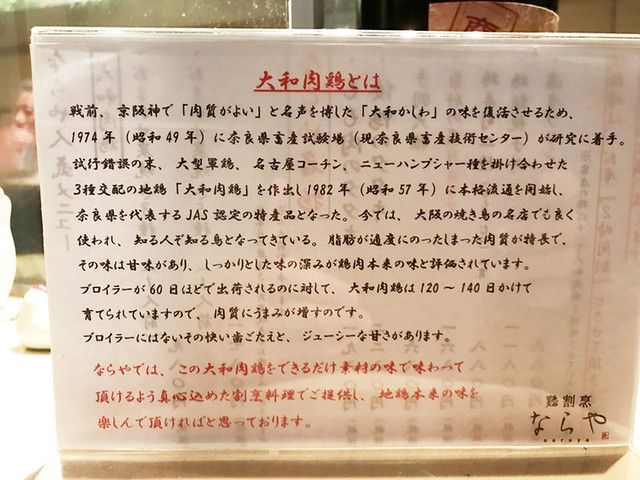 大和肉鶏とは
戦前、京阪神で「肉質がよい」と名声を博した「大和かしわ」の味を復活させるため、
1974年(昭和49年)に奈良県畜産試験場(現奈良県畜産技術センター)が研究に着手。
試行錯誤の末、大型軍鶏、名古屋コーチン、ニューハンプシャー種を掛け合わせた
3種交配の地鶏「大和肉鶏」を作出し1982年(昭和57年)に本格流通を開始し、
奈良県を代表するJAS認定の特産品となった。今では、大阪の焼き鳥の名店でも良く
使われ、知る人ぞ知る鳥となってきている。脂肪が適度にのったしまった肉質が特長で、
その味は甘味があり、しっかりとした味の深みが鶏肉本来の味と評価されています。
ブロイラーが60日ほどで出荷されるのに対して、大和肉鶏は120〜140日かけて
育てられていますので、肉質にうまみが増すのです。
ブロイラーにはないその快い歯ごたえと、ジューシーな甘さがあります。
ならやでは、この大和肉鶏をできるだけ素材の味で味わって
頂けるよう真心込めた割烹料理でご提供し、地鶏本来の味を
楽しんで頂ければと思っております。
鶏割烹
ならや
naraya